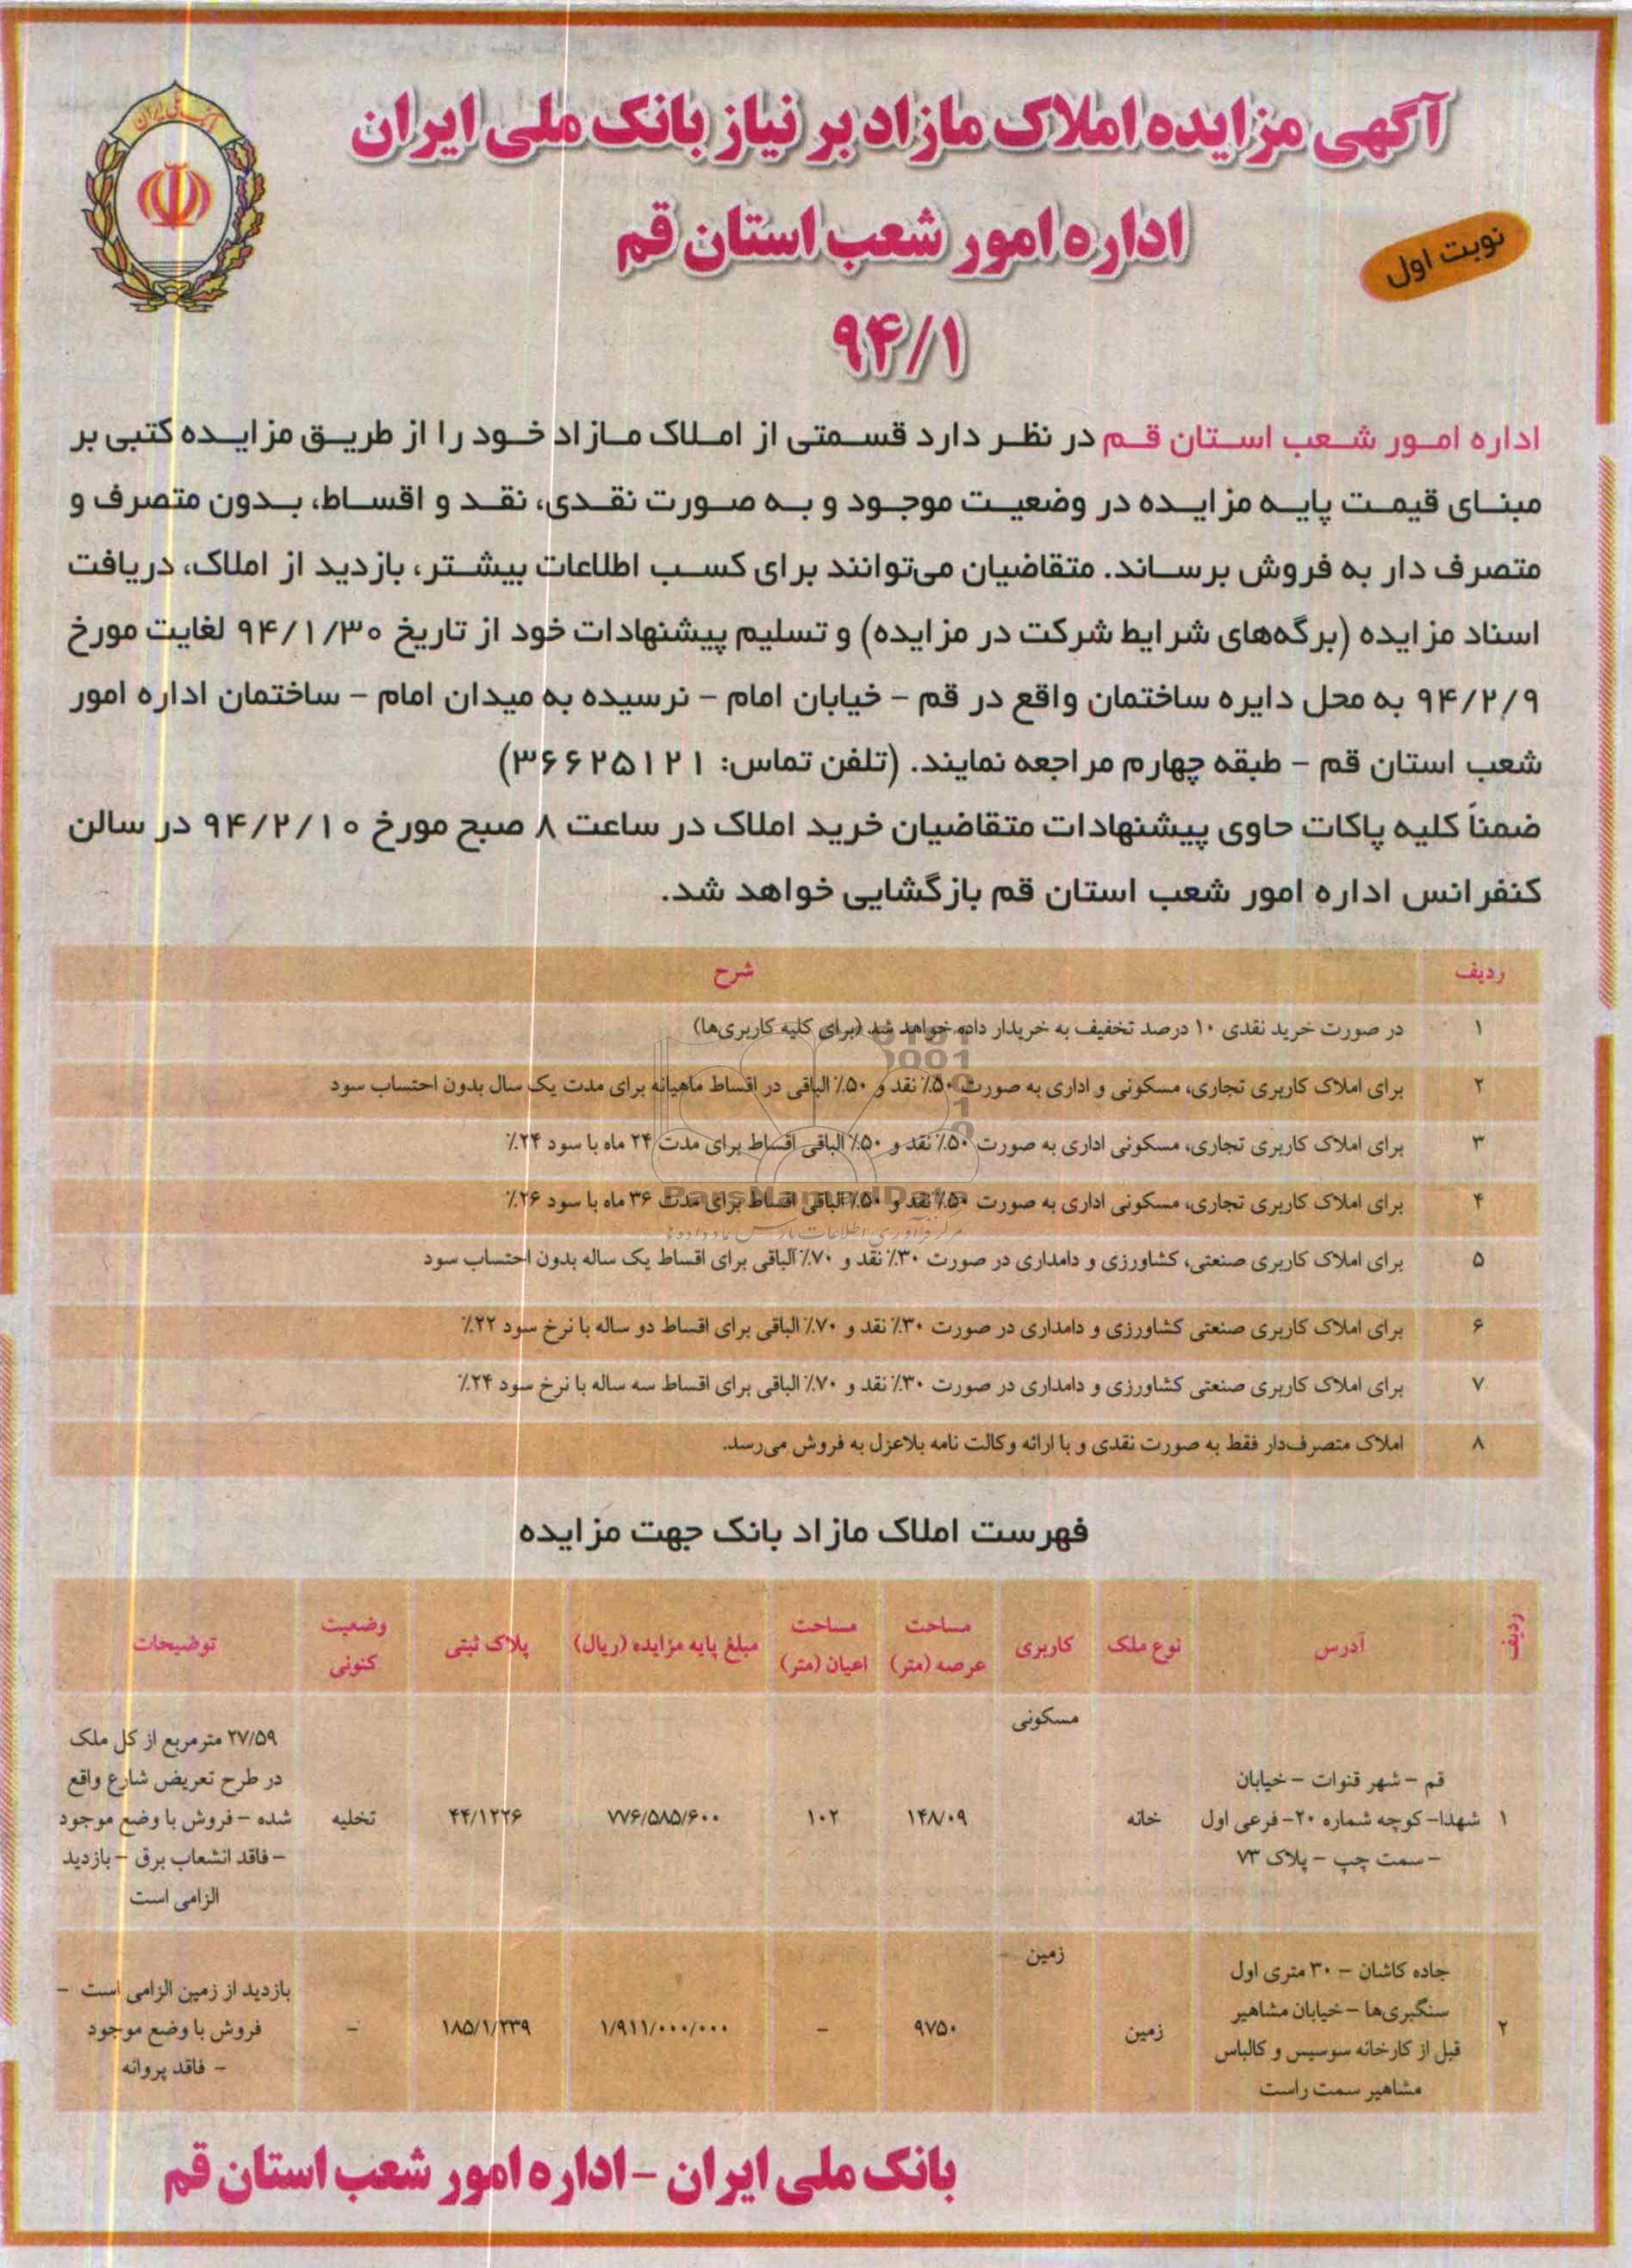 آگهی مزایده املاک مازاد بر نیاز بانک ملی ایران
اداره امور شعب استان قم
نوبت اول
۹۴/۱
اداره امور شعب استان قم در نظر دارد قسمتی از املاک مازاد خود را از طریق مزایده کتبی بر
مبنای قیمت پایه مزایده در وضعیت موجود و به صورت نقدی، نقد و اقساط، بدون متصرف و
متصرف دار به فروش برساند. متقاضیان می‌توانند برای کسب اطلاعات بیشتر، بازدید از املاک، دریافت
اسناد مزایده (برگه‌های شرایط شرکت در مزایده) و تسلیم پیشنهادات خود از تاریخ ۹۴/۱/۳۰ لغایت مورخ
۹۴/۲/۹ به محل دایره ساختمان واقع در قم - خیابان امام - نرسیده به میدان امام - ساختمان اداره امور
شعب استان قم - طبقه چهارم مراجعه نمایند. (تلفن تماس: ۳۶۶۲۵۱۲۱)
ضمناً کلیه پاکات حاوی پیشنهادات متقاضیان خرید املاک در ساعت ۸ صبح مورخ ۹۴/۲/۱۰ در سالن
کنفرانس اداره امور شعب استان قم بازگشایی خواهد شد.
ردیف شرح
۱ در صورت خرید نقدی ۱۰ درصد تخفیف به خریدار داده خواهد شد (برای کلیه کاربری‌ها)
۲ برای املاک کاربری تجاری، مسکونی و اداری به صورت ۵۰٪ نقد و ۵۰٪ الباقی در اقساط ماهیانه برای مدت یک سال بدون احتساب سود
۳ برای املاک کاربری تجاری، مسکونی اداری به صورت ۵۰٪ نقد و ۵۰٪ الباقی اقساط برای مدت ۲۴ ماه با سود ۲۴٪
۴ برای املاک کاربری تجاری، مسکونی اداری به صورت ۵۰٪ نقد و ۵۰٪ الباقی اقساط برای مدت ۳۶ ماه با سود ۲۶٪
۵ برای املاک کاربری صنعتی، کشاورزی و دامداری در صورت ۳۰٪ نقد و ۷۰٪ الباقی برای اقساط یک ساله بدون احتساب سود
۶ برای املاک کاربری صنعتی کشاورزی و دامداری در صورت ۳۰٪ نقد و ۷۰٪ الباقی برای اقساط دو ساله با نرخ سود ۲۲٪
۷ برای املاک کاربری صنعتی کشاورزی و دامداری در صورت ۳۰٪ نقد و ۷۰٪ الباقی برای اقساط سه ساله با نرخ سود ۲۴٪
۸ املاک متصرف‌دار فقط به صورت نقدی و با ارائه وکالت نامه بلاعزل به فروش می‌رسد.
ParsNamadData
فهرست املاک مازاد بانک جهت مزایده
ردیف آدرس نوع ملک کاربری مساحت عرصه (متر) مساحت اعیان (متر) مبلغ پایه مزایده (ریال) پلاک ثبتی وضعیت کنونی توضیحات
۱ قم - شهر قنوات - خیابان شهدا- کوچه شماره ۲۰- فرعی اول - سمت چپ - پلاک ۷۳ خانه مسکونی ۱۴۸/۰۹ ۱۰۲ ۷۷۶/۵۸۵/۶۰۰ ۴۴/۱۲۲۶ تخلیه ۲۷/۵۹ مترمربع از کل ملک در طرح تعریض شارع واقع شده - فروش با وضع موجود - فاقد انشعاب برق - بازدید الزامی است
۲ جاده کاشان - ۳۰ متری اول سنگبری‌ها - خیابان مشاهیر قبل از کارخانه سوسیس و کالباس مشاهیر سمت راست زمین زمین ۹۷۵۰ - ۱/۹۱۱/۰۰۰/۰۰۰ ۱۸۵/۱/۲۳۹ - بازدید از زمین الزامی است - فروش با وضع موجود - فاقد پروانه
بانک ملی ایران - اداره امور شعب استان قم